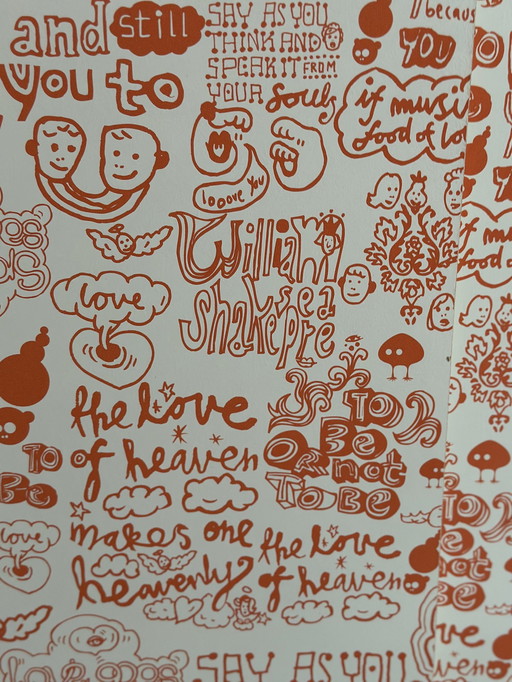 and still
you to
SAY AS YOU
THINK AND
SPEAK IT FROM
YOUR Souls
becaus
YOU
if musi
food of lo
looove you
William
Shakespeare
love
the Love
of heaven
makes one
heavenly
TO
BE
OR not
TO BE
the Love
of heaven
TO
Be
love
SAY AS YOU
f mu
food o
TO
ve
ven